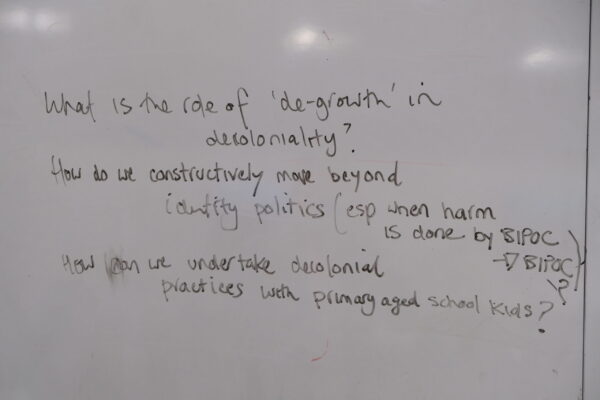 What is the role of 'de-growth' in
decoloniality?
How do we constructively move beyond
identity politics (esp when harm
is done by BIPOC
→ BIPOC)
?
How can we undertake decolonial
practices with primary aged school kids?